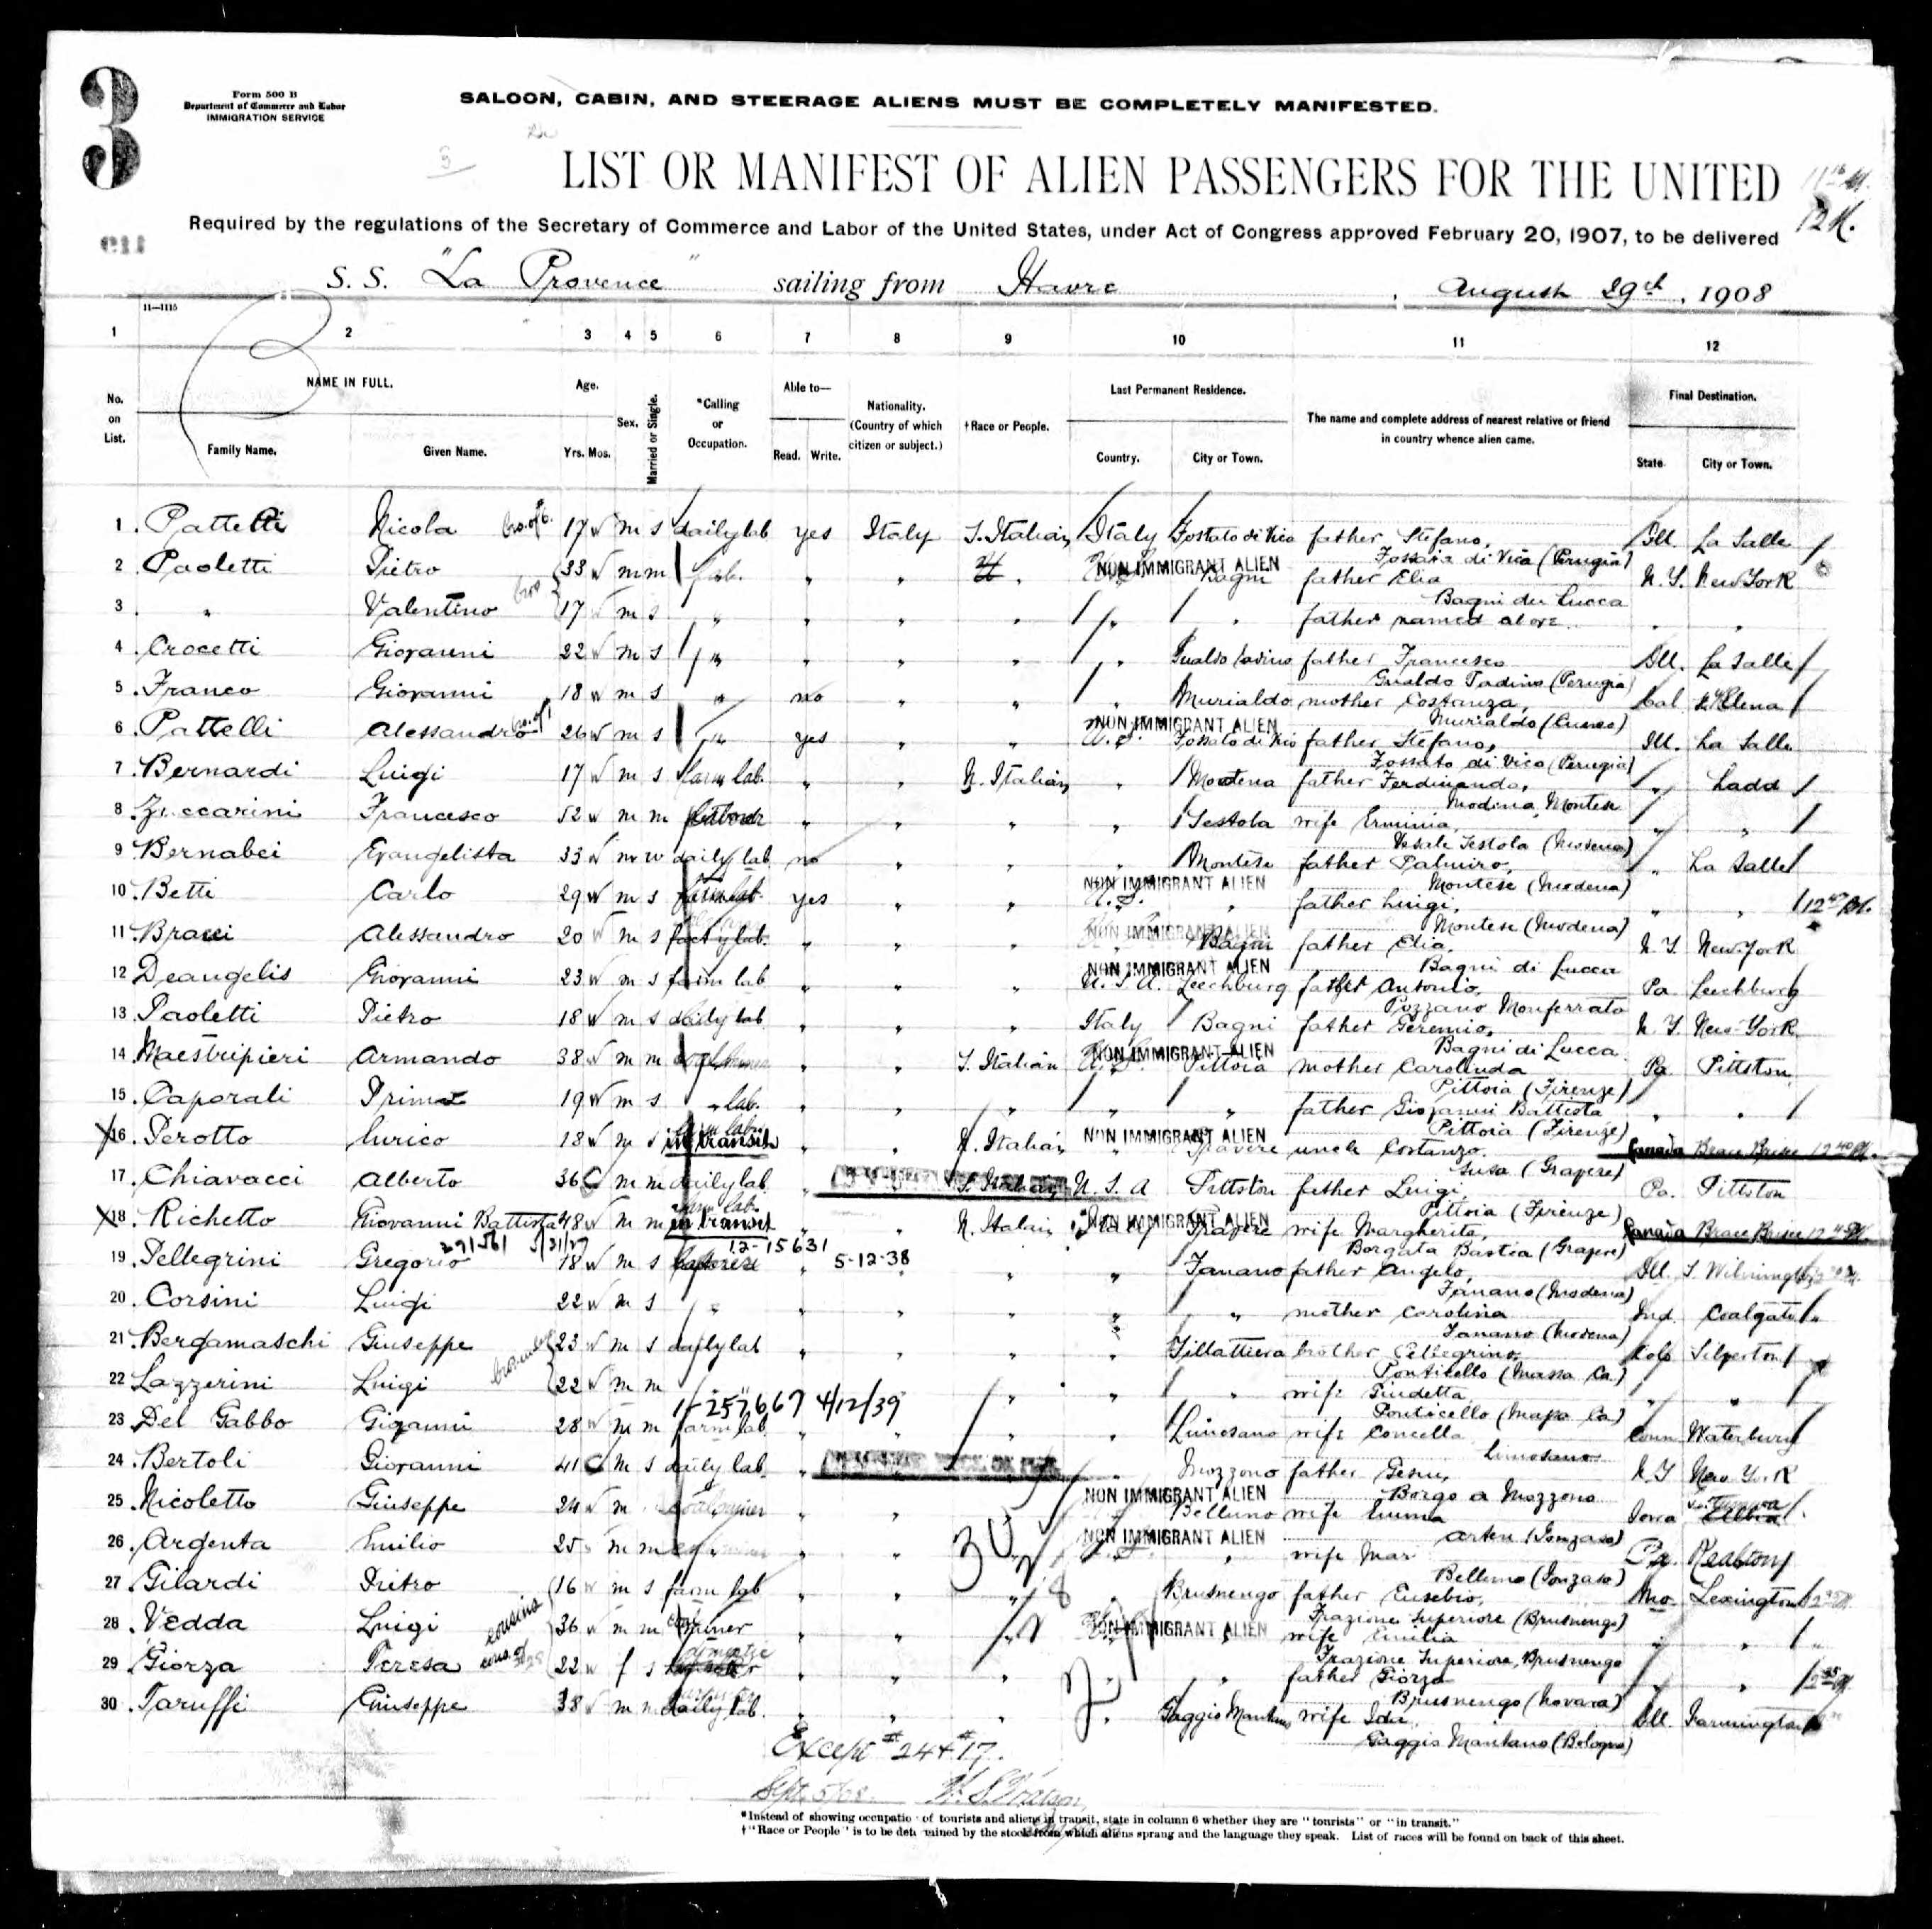 3
Form 500 B
Department of Commerce and Labor
IMMIGRATION SERVICE
SALOON, CABIN, AND STEERAGE ALIENS MUST BE COMPLETELY MANIFESTED.
3
LIST OR MANIFEST OF ALIEN PASSENGERS FOR THE UNITED
12 M.
Required by the regulations of the Secretary of Commerce and Labor of the United States, under Act of Congress approved February 20, 1907, to be delivered
S. S. "La Provence" sailing from Havre, August 29th, 1908
11—1115
1 2 3 4 5 6 7 8 9 10 11 12
No. on List.
NAME IN FULL.
Family Name. Given Name.
Age.
Yrs. Mos.
Sex.
Married or Single.
*Calling or Occupation.
Able to—
Read. Write.
Nationality. (Country of which citizen or subject.)
†Race or People.
Last Permanent Residence.
Country. City or Town.
The name and complete address of nearest relative or friend in country whence alien came.
Final Destination.
State. City or Town.
1 Pattelli Nicola bro. of 6. 17 m s daily lab yes Italy S. Italian Italy Fossato di Vico father Stefano, Ill. La Salle
Fossato di Vico (Perugia)
2 Paoletti Pietro bros 33 m m " " NON IMMIGRANT ALIEN Bagni father Elia N. Y. New York
Bagni di Lucca
3 " Valentino 17 m s " " " " " " father named above " "
4 Crocetti Giovanni 22 m s " " " " " Gualdo Tadino father Francesco Ill. La Salle
Gualdo Tadino (Perugia)
5 Franco Giovanni 18 m s " no " " " Murialdo mother Costanza, Cal
Murialdo (Cuneo)
6 Pattelli Alessandro bro. of 1 26 m s " yes " " NON IMMIGRANT ALIEN Fossato di Vico father Stefano, Ill. La Salle
Fossato di Vico (Perugia)
7 Bernardi Luigi 17 m s farm lab. " " N. Italian " Modena father Ferdinando, " Ladd
Modena, Montese
8 Zuccarini Francesco 52 m m " " " " Sestola wife Erminia, " "
Sestola (Modena)
9 Bernabei Evangelista 33 m w daily lab no " " " Montese father Palmiro, " La Salle
Montese (Modena)
10 Betti Carlo 29 m s farm lab. yes " " NON IMMIGRANT ALIEN U.S. " father Luigi, " "
Montese (Modena)
11 Alessandro 20 m s fact'y lab. " " " NON IMMIGRANT ALIEN Bagni father Elia, N. Y. New York
Bagni di Lucca
12 Deangelis Giovanni 23 m s farm lab " " " NON IMMIGRANT ALIEN U. S. A. Leechburg father Antonio, Pa Leechburg
Pozzano Monferrato
13 Paoletti Pietro 18 m s daily lab " " " Italy Bagni father Geremio, N. Y. New-York
Bagni di Lucca
14 Maestripieri Armando 38 m m " " S. Italian NON IMMIGRANT ALIEN Pittoia mother Carolinda Pa Pittston
Pittoia (Firenze)
15 Caporali Primo 19 m s " lab. " " " " " father Giovanni Battista " "
Pittoia (Firenze)
16 Perotto Enrico 18 m s farm lab. in transit " " N. Italian NON IMMIGRANT ALIEN " uncle Costanzo. Canada
Susa (Gravere)
17 Chiavacci Alberto 36 m m daily lab. " S. Italian U. S. A Pittston father Luigi, Pa. Pittston
Pittoia (Firenze)
18 Richetto Giovanni Battista 48 m m farm lab. in transit " " N. Italian Italy NON IMMIGRANT ALIEN Gravere wife Margherita, Canada
Borgata Bastia (Gravere)
12-15631
19 Pellegrini Gregorio 18 m s " 5-12-38 " " Fanano father Angelo, Ill. S. Wilmington
Fanano (Modena)
20 Corsini Luigi 22 m s " " " " " " mother Carolina Ind. Coalgate
Fanano (Modena)
21 Bergamaschi Giuseppe 23 m s daily lab " " " " Fillattiera brother Pellegrino, Colo Silverton
Ponticello (Massa Ca)
22 Lazzerini Luigi 22 m m " " " wife Giudetta " "
1-257667 4/12/39
Ponticello (Massa Ca)
23 Del Gobbo Giovanni 28 m m farm lab. " " " " Limosano wife Concella Conn Waterbury
Limosano
24 Bertoli Giovanni 41 m s daily lab. " " " Mozzono father Gesu, N Y New York
Borgo a Mozzono
25 Nicoletto Giuseppe 24 m coalminer " " NON IMMIGRANT ALIEN Belluno wife Emma Iowa
Arten (Fonzaso)
26 Argenta Emilio 25 m m " " " NON IMMIGRANT ALIEN " wife Mar Pa.
Belluno (Fonzaso)
27 Gilardi Pietro cousins 16 m s farm lab " " " Brusnengo father Eusebio, Mo. Lexington
Frazione Superiore (Brusnengo)
28 Vedda Luigi 36 m m miner " " " NON IMMIGRANT ALIEN " wife Emilia " "
Frazione Superiore, Brusnengo
29 Giorza Teresa 22 f s domestic " " " " " father Giorza " "
Brusnengo (Novara)
30 Taruffi Giuseppe 38 m m daily lab. " " " " Gaggio Montano wife Ida, Ill. Farmington
Gaggio Montano (Bologna)
Except #24 & #17.
Sept. 5/08.
*Instead of showing occupation of tourists and aliens in transit, state in column 6 whether they are "tourists" or "in transit."
†"Race or People" is to be determined by the stock from which aliens sprang and the language they speak. List of races will be found on back of this sheet.